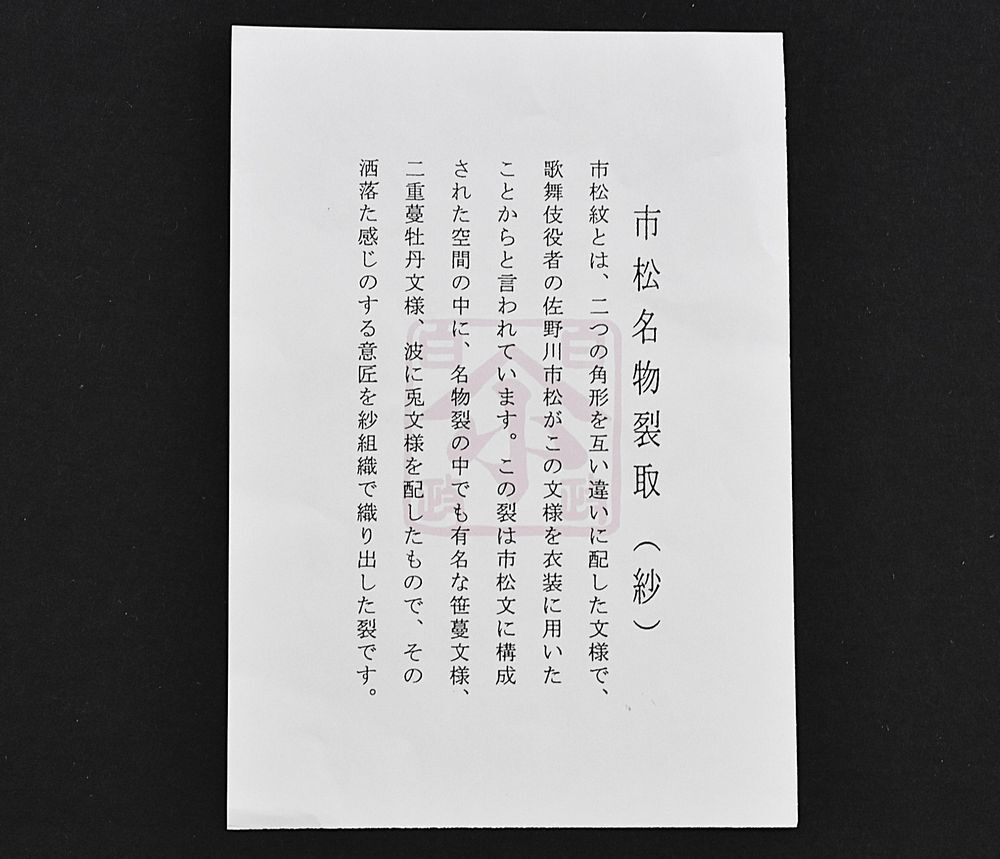 市松名物裂取（紗）
市松紋とは、二つの角形を互い違いに配した文様で、
歌舞伎役者の佐野川市松がこの文様を衣装に用いた
ことからと言われています。この裂は市松文に構成
された空間の中に、名物裂の中でも有名な笹蔓文様、
二重蔓牡丹文様、波に兎文様を配したもので、その
洒落た感じのする意匠を紗組織で織り出した裂です。